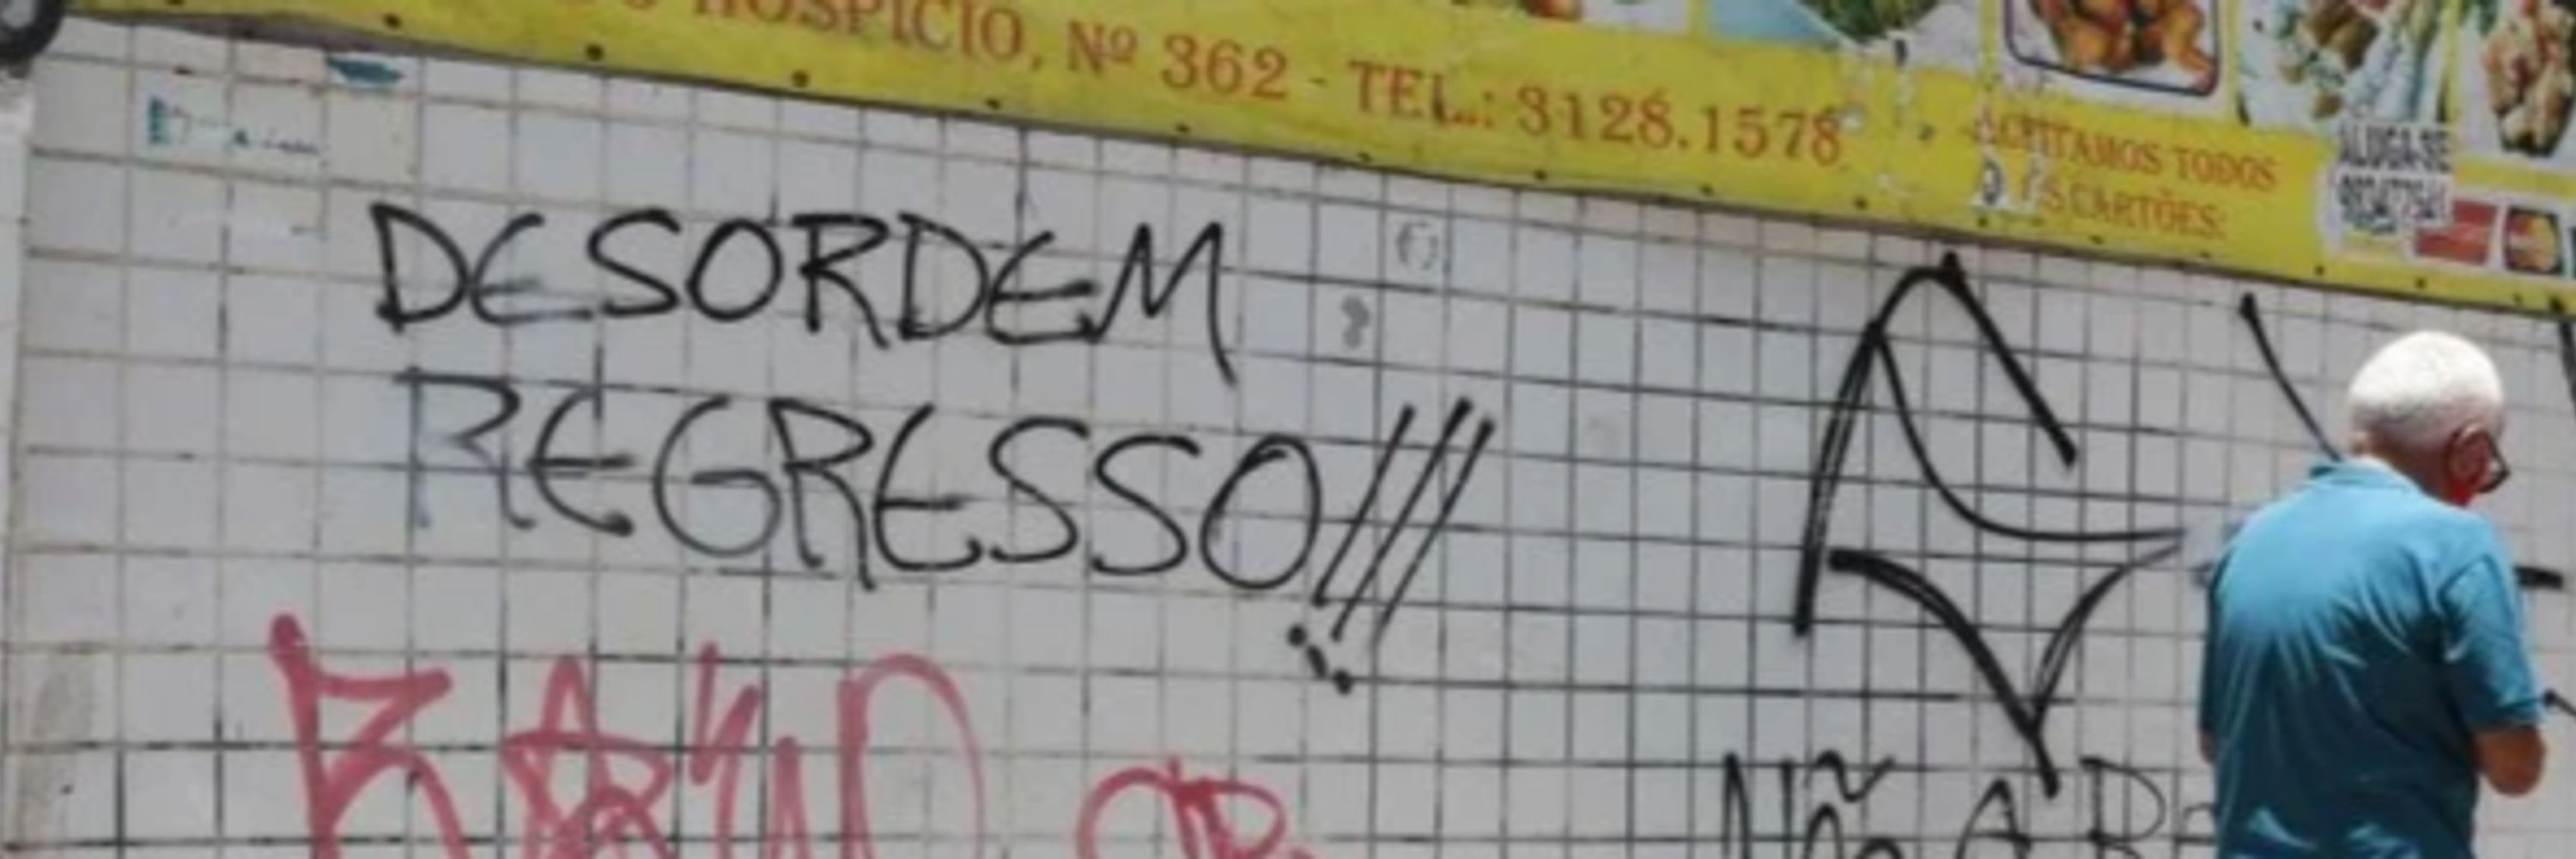 HOSPICIO, Nº 362 - TEL.: 3128.1578
ACEITAMOS TODOS
OS CARTÕES:
ALUGA-SE
DESORDEM
REGRESSO!!!
NÃO A